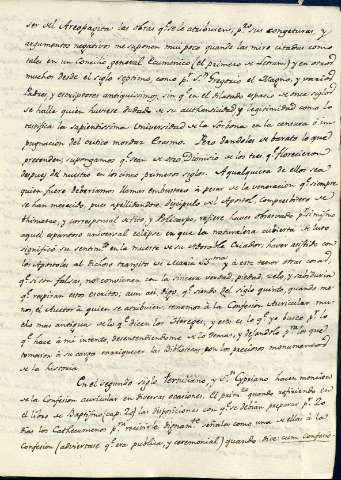 ser del Areopagita las obras qe. se le atribuien, pr. sus congeturas, y
argumentos negativos me saponen muy poco quando las miro citadas como
tales en un Concilio general Ecumenico (el primero de Letran) y en
muchos desde el siglo septimo, como pr. Sn. Gregorio el Magno, y varios
Padres, y escriptores antiquisimos, sin qe. en el dilatado espacio de once siglos
se halle quien huviese dudado de su authenticidad y legitimidad como lo
testifica la sapientissima Universidad de la Sorbona en la censura ó im-
pugnacion del critico mordaz Erasmo. Pero dandoles de barato lo que
pretenden, supongamos qe. sean de otro Dionisio de los tres qe. florecieron
despues de nuestro en los cinco primeros siglos. A qualquiera de ellos sea
quien fuere deberiamos llamar embustero á pesar de la veneracion qe. siempre
se han merecido, pues apellidandose discipulo del Apostol, compresbitero de
Thimoteo, y corresponsal de Tito, y Policarpo, refiere haver observado pr. si mismo
aquel aparatoso universal eclipse en que la naturaleza cubierta de luto
significó su sentimto. en la muerte de su adorable Criador: haver asistido con
los Apostoles al dichoso transito de Maria SSma. y á este tenor otras cosas
qe. si son falsas, no convienen con la sincera verdad, piedad, zelo, y sabiduria
qe. respiran estos escritos; aun asi digo, qe. siendo del siglo quinto, quando me-
nos, el Auctor á quien se atribuien, tenemos á la Confesion Auricular mu-
cho mas antigua de lo qe. dicen los Hereges, y esto es lo qe. yo busco pr. lo
qe. hace á mi intento, desentendiendome de lo demas, y dejandolo pa. los que
tomaron á su cargo enriquecer las Bibliotecas por los preciosos monumentos
de la historia.
En el segundo siglo Tertuliano, y Sn. Cypriano hacen mencion
de la Confesion auricular en diversas ocasiones. El primo. quando refiriendo en
el libro de Baptismo (cap. 20) las disposiciones con qe. se debian preparar pr. 20
dias los Cathecumenos pa. recibirle dignamte. señala como una de ellas á la
Confesion (adviertase qe. era publica, y ceremonial) quando dice cum confesio-